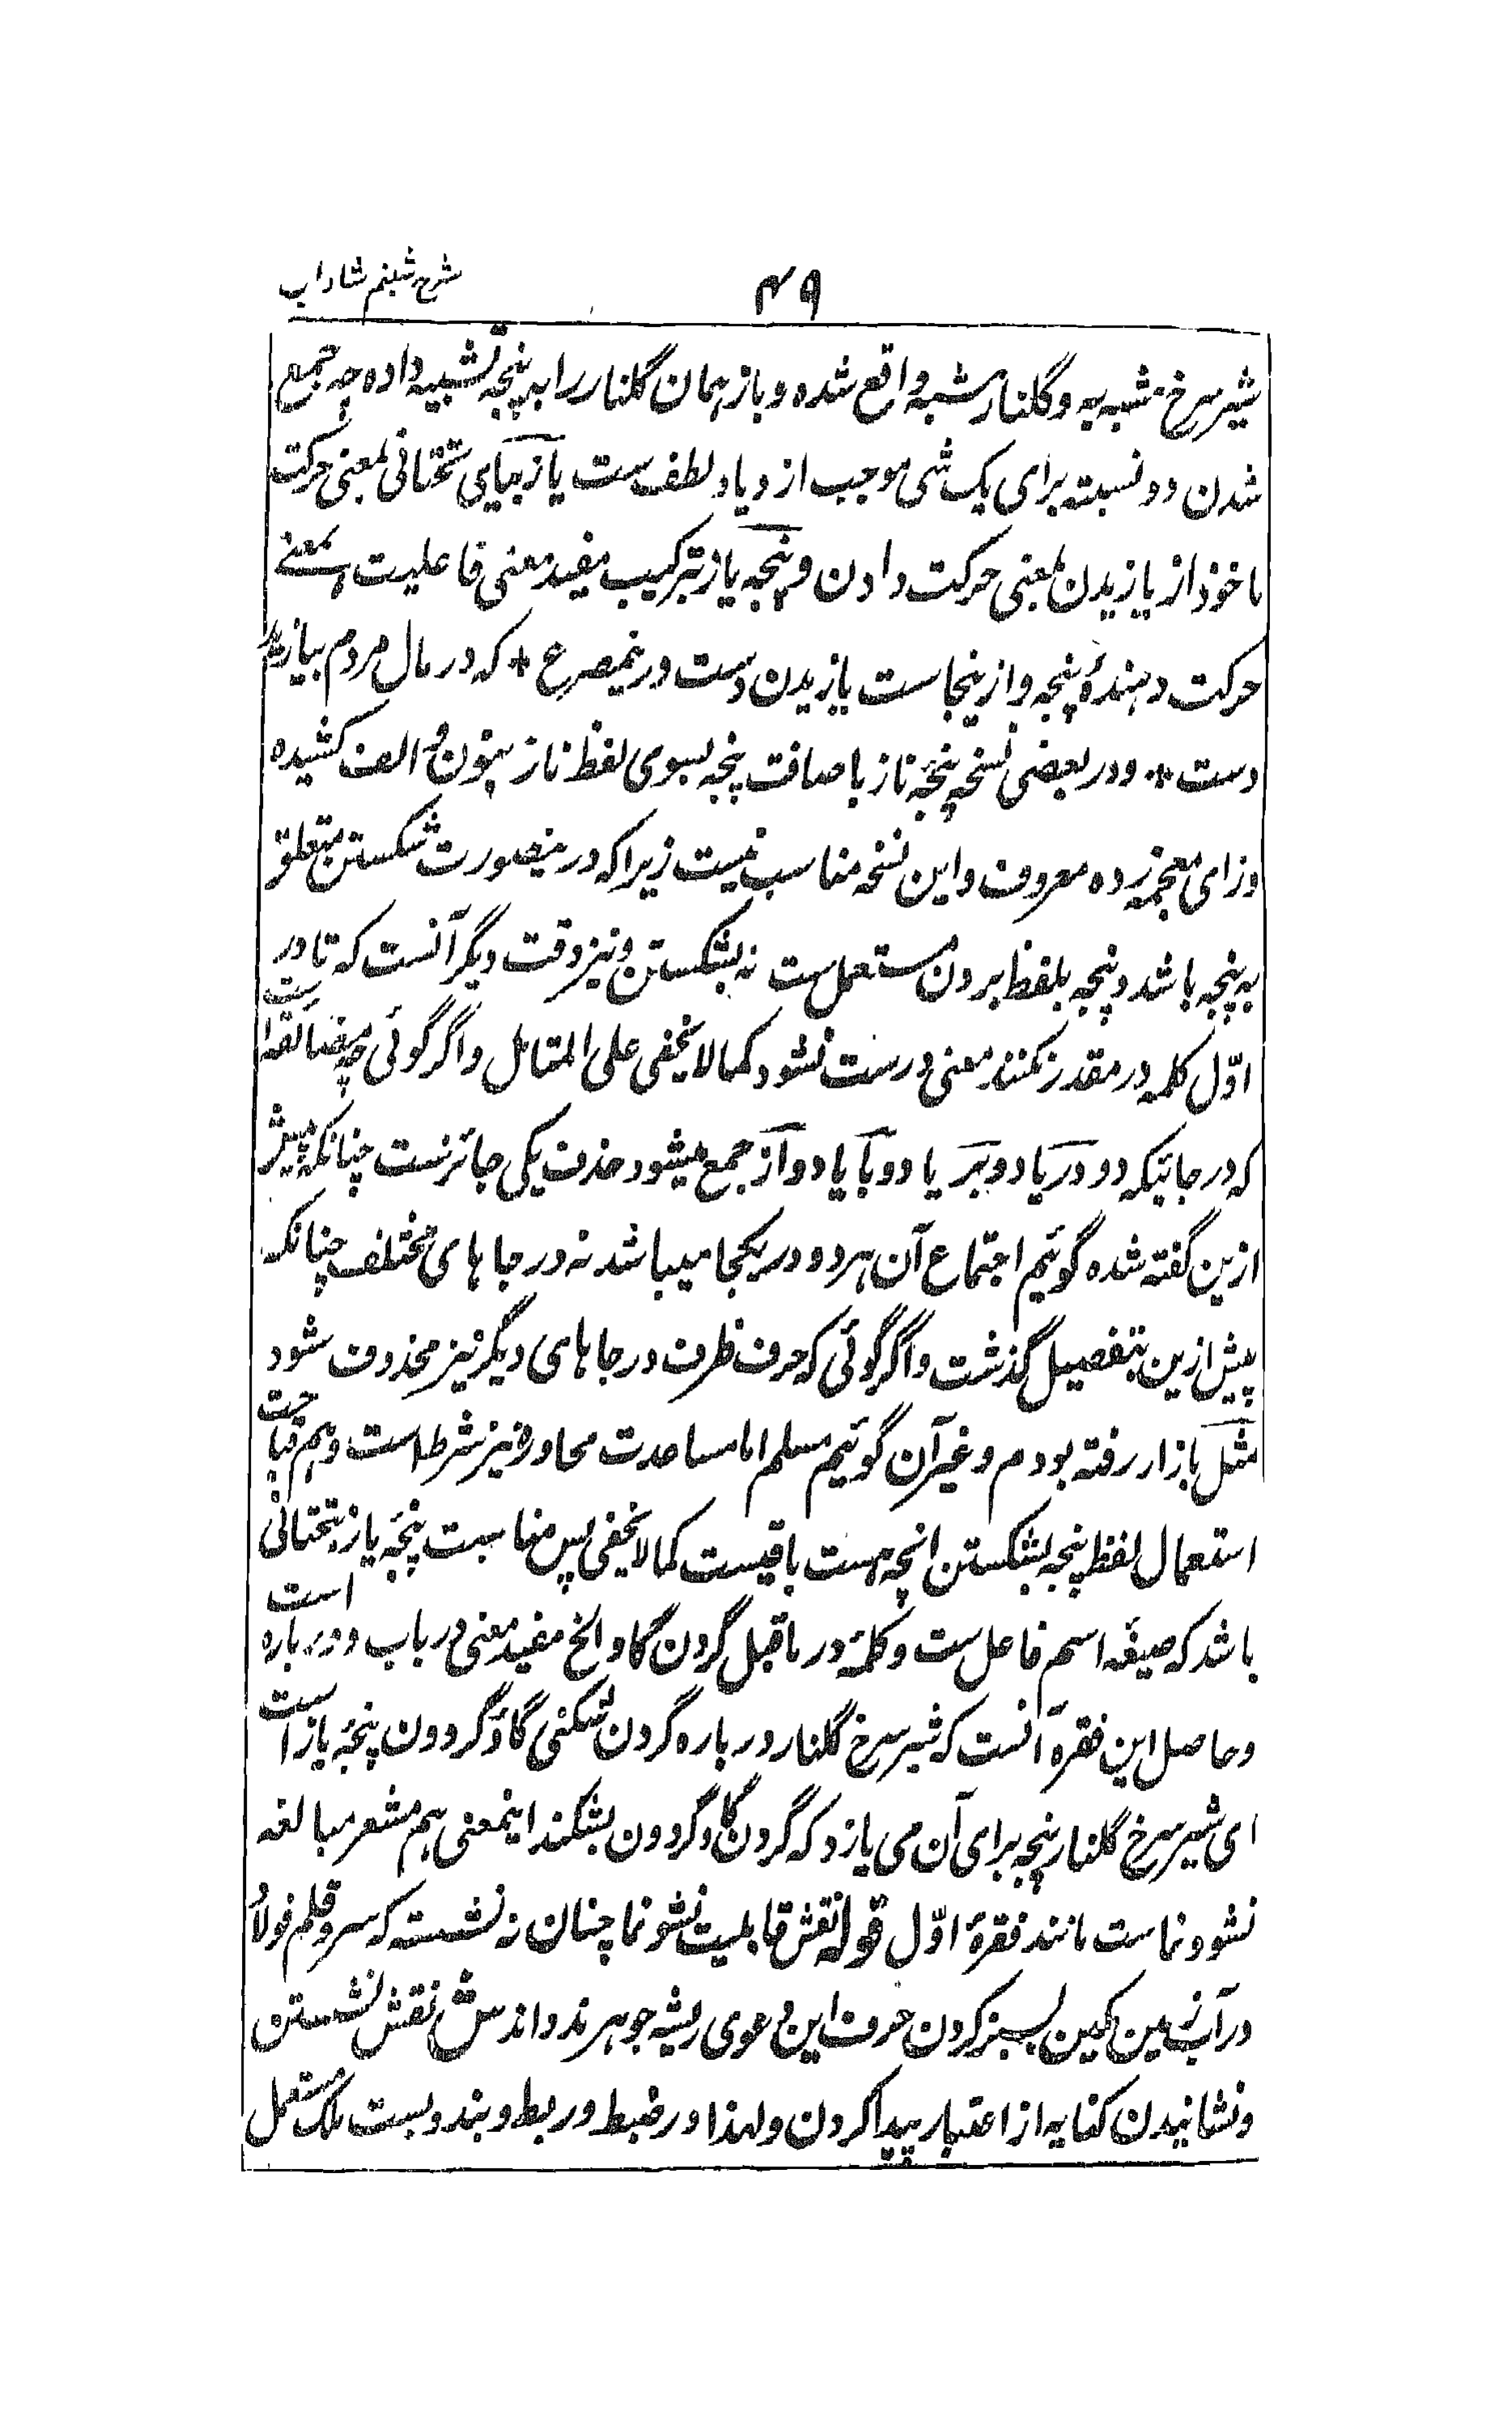 شرح شبنم شاداب
۴۹
شیر سرخ مشبه به و گلنار مشبه واقع شده و باز همان گلنار را به پنجه تشبیه داده چه جمع
شدن دو نسبته برای یک شی موجب ازدیاد لطف ست یاز بیایی تحتانی بمعنی حرکت
ماخوذ از یازیدن بمعنی حرکت دادن و پنجه یاز بترکیب مفید معنی فاعلیت است بمعنی
حرکت دهندهٔ پنجه و ازینجاست یازیدن دست درینمصرع * که در مال مردم بیازید
دست * و در بعضی نسخه پنجهٔ ناز باضافت پنجه بسوی لفظ ناز بنون و الف کشیده
و زای معجمه زده معروف و این نسخه مناسب نیست زیرا که درینصورت شکستن متعلق
به پنجه باشد و پنجه بلفظ برون مستعمل ست نه بشکستن و نیز دقت دیگر آنست که تا در
اوّل کلمه در مقدر نکنند معنی درست نشود کما لا یخفی علی المتامل و اگر گوئی چه مضائقه است
که در جائیکه دو در یا دو بر یا دو با یا دو از جمع میشود حذف یکی جائزست چنانکه پیش
ازین گفته شده گوئیم اجتماع آن هر دو در یکجا میباشد نه در جاهای مختلف چنانکه
پیش ازین بتفصیل گذشت و اگر گوئی که حرف ظرف در جاهای دیگر نیز محذوف شود
مثل بازار رفته بودم و غیر آن گوئیم مسلم اما مساعدت محاوره نیز شرط است و هم قباحت
استعمال لفظ پنجه بشکستن انچه هست باقیست کما لا یخفی پس مناسبت پنجهٔ یاز بتحتانی
باشد که صیغه اسم فاعل ست و کلمهٔ در ماقبل گردن گاو الخ مفید معنی در باب و در باره است
و حاصل این فقره آنست که شیر سرخ گلنار در باره گردن شکنی گاو گردون پنجهٔ یاز است
ای شیر سرخ گلنار پنجه برای آن می یازد که گردن گاو گردون بشکند اینمعنی هم مشعر مبالغه
نشو و نماست مانند فقرهٔ اوّل قوله نقش قابلیت نشو نما چنان نه نشسته که سرو قلم فولاد
در آن زمین نگین بسبز کردن حرف این دعوی ریشه جوهر ندواند ش نقش نشستن
و نشانیدن کنایه از اعتبار پیدا کردن و لهذا در ضبط و ربط و بند و بست ملک مستعمل